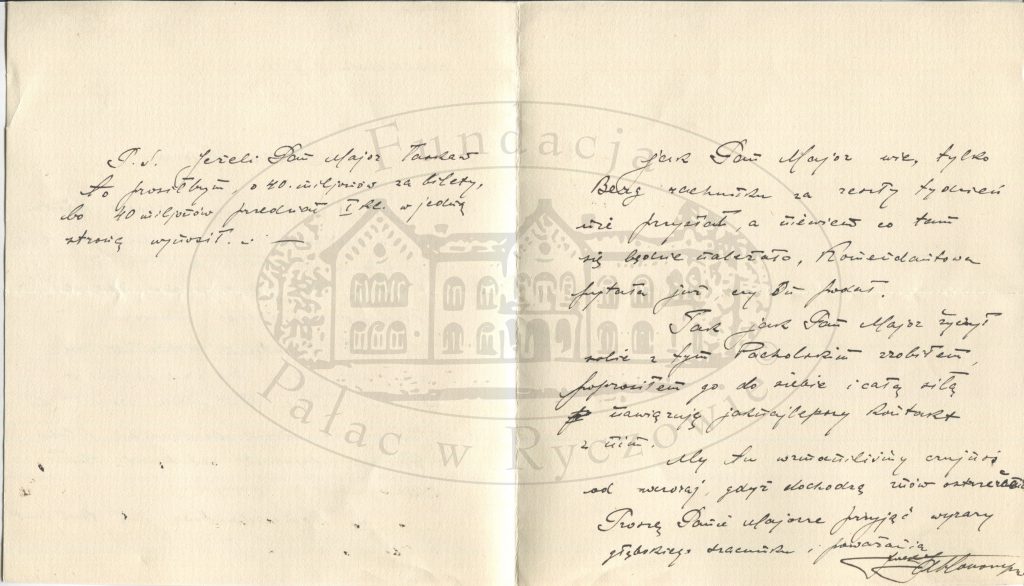 P.S. Jeżeli Pan Major łaskaw
to prosiłbym o 40 miljonów za bilety,
bo 40 miljonów przedział I kl. w jedną
stronę wynosił. —
jak Pan Major wie, tylko
Berg rachunku za zeszły tydzień
nie przysłał, a niewiem co tam
się będzie należało, Komendantowa
pytała już, czy Bu podał.
Tak jak Pan Major życzył
sobie z tym Pacholskim zrobiłem,
poprosiłem go do siebie i całą siłą
nawiązuję jaknajlepszy kontakt
z nim.
My tu wzmocniliśmy czujność
od wczoraj, gdyż dochodzą znów ostrzeżenia
Proszę Panie Majorze przyjąć wyrazy
głębokiego szacunku i poważania
Fundacja
Pałac w Ryczowie